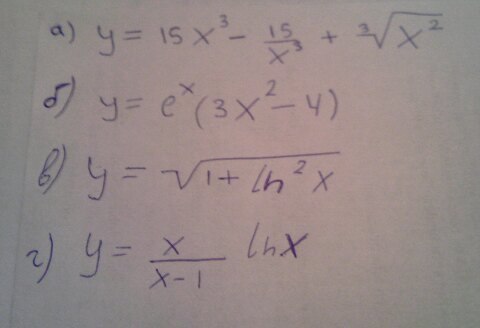 а) y = 15x³ - 15/x³ + ³√x²
б) y = eˣ(3x² - 4)
в) y = √(1 + ln²x)
г) y = x/(x-1) lnx